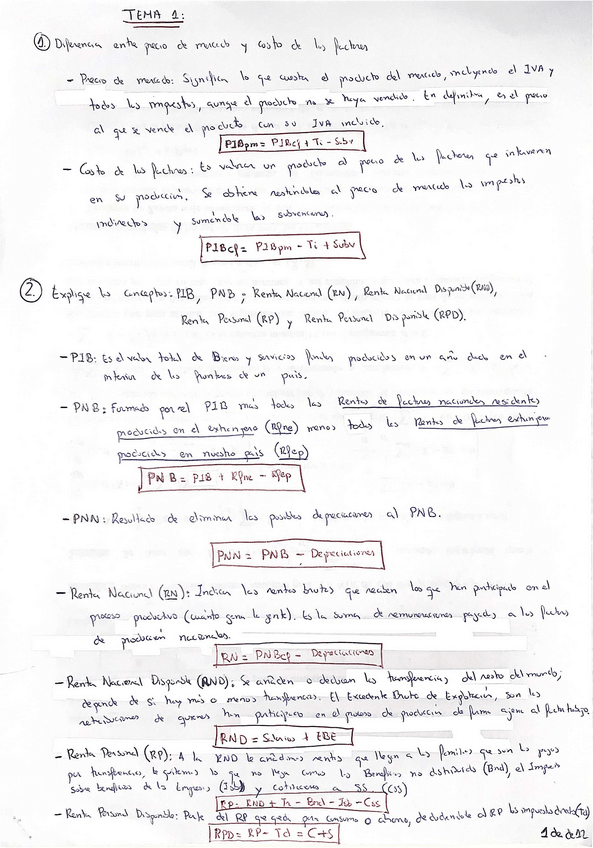 TEMA 1:
1. Diferencia entre precio de mercado y costo de los factores
- Precio de mercado: Significa lo que cuesta el producto del mercado, incluyendo el IVA y
todos los impuestos, aunque el producto no se haya vendido. En definitiva, es el precio
al que se vende el producto con su IVA incluido.
PIBpm = PIBcf + Ti - Subv
- Costo de los factores: Es valorar un producto al precio de los factores que intervienen
en su producción. Se obtiene restándoles al precio de mercado los impuestos
indirectos y sumándole las subvenciones.
PIBcf = PIBpm - Ti + Subv
2. Explique los conceptos: PIB, PNB, Renta Nacional (RN), Renta Nacional Disponible (RND),
Renta Personal (RP) y Renta Personal Disponible (RPD).
- PIB: Es el valor total de Bienes y servicios finales producidos en un año dado en el
interior de las fronteras de un país.
- PNB: Formado por el PIB más todas las Rentas de factores nacionales residentes
producidas en el extranjero (Rfne) menos todas las Rentas de factores extranjeros
producidas en nuestro país (Rfep)
PNB = PIB + Rfne - Rfep
- PNN: Resultado de eliminar las posibles depreciaciones al PNB.
PNN = PNB - Depreciaciones
- Renta Nacional (RN): Indican las rentas brutas que reciben los que han participado en el
proceso productivo (cuánto gana la gente). Es la suma de remuneraciones pagadas a los factores
de producción nacionales.
RN = PNBcf - Depreciaciones
- Renta Nacional Disponible (RND): Se añaden o deducen las transferencias del resto del mundo,
depende de si hay más o menos transferencias. El Excedente Bruto de Explotación, son las
retribuciones de quienes han participado en el proceso de producción de forma ajena al factor trabajo.
RND = Salarios + EBE
- Renta Personal (RP): A la RND le añadimos rentas que llegan a las familias que son los pagos
por transferencias, le quitamos lo que no llega como los Beneficios no distribuidos (Bnd), el Impuesto
sobre beneficios de las Empresas (Isb) y cotizaciones a SS (Css)
RP = RND + Tr - Bnd - Isb - Css
- Renta Personal Disponible: Parte del RP que queda para consumo o ahorro, deduciéndole al RP los impuestos directos (Td)
RPD = RP - Td = C+S
1 de 12